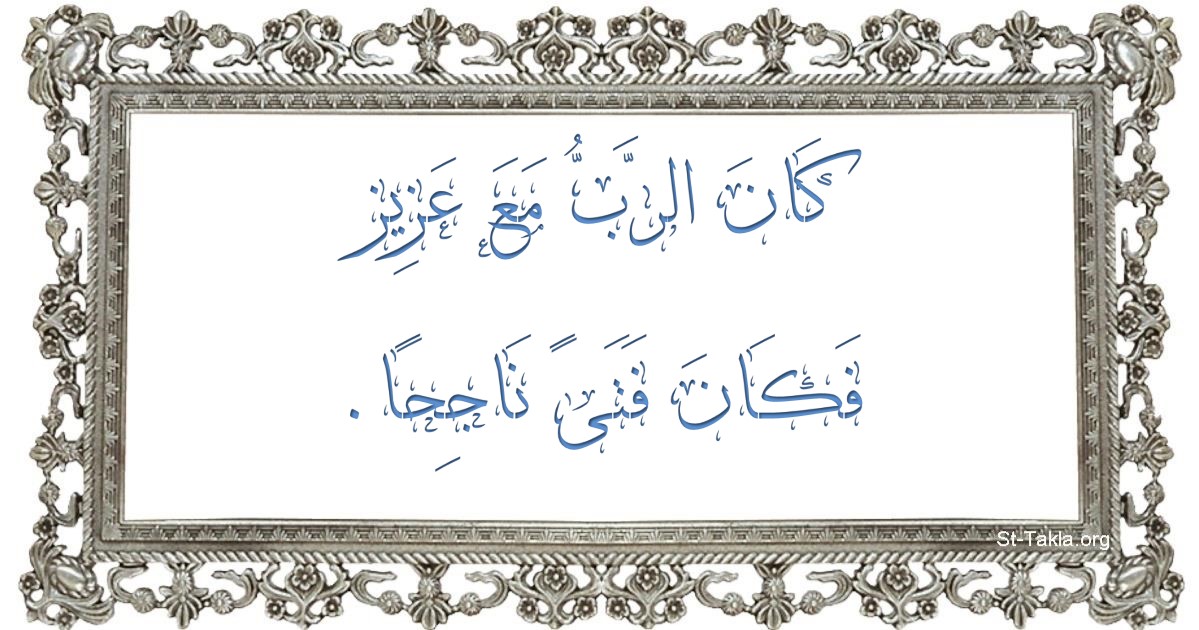 كَانَ الرَّبُّ مَعَ عَزِيز
فَكَانَ فَتَىً نَاجِحًا .
St-Takla.org